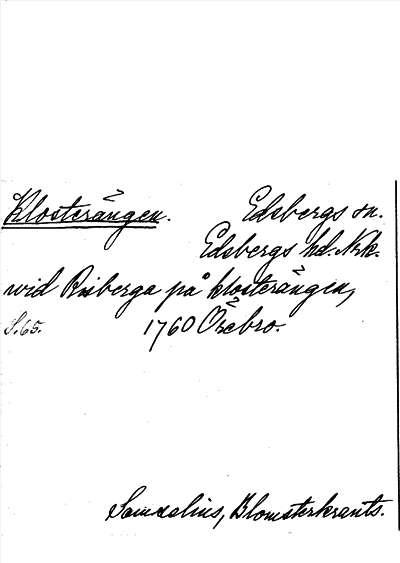 Klosterängen. Edsbergs sn.
Edsbergs hd. Nrk.
wid Risberga på klosterängen,
S. 65. 1760 Örebro.
Samzelius, Blomsterkrants.